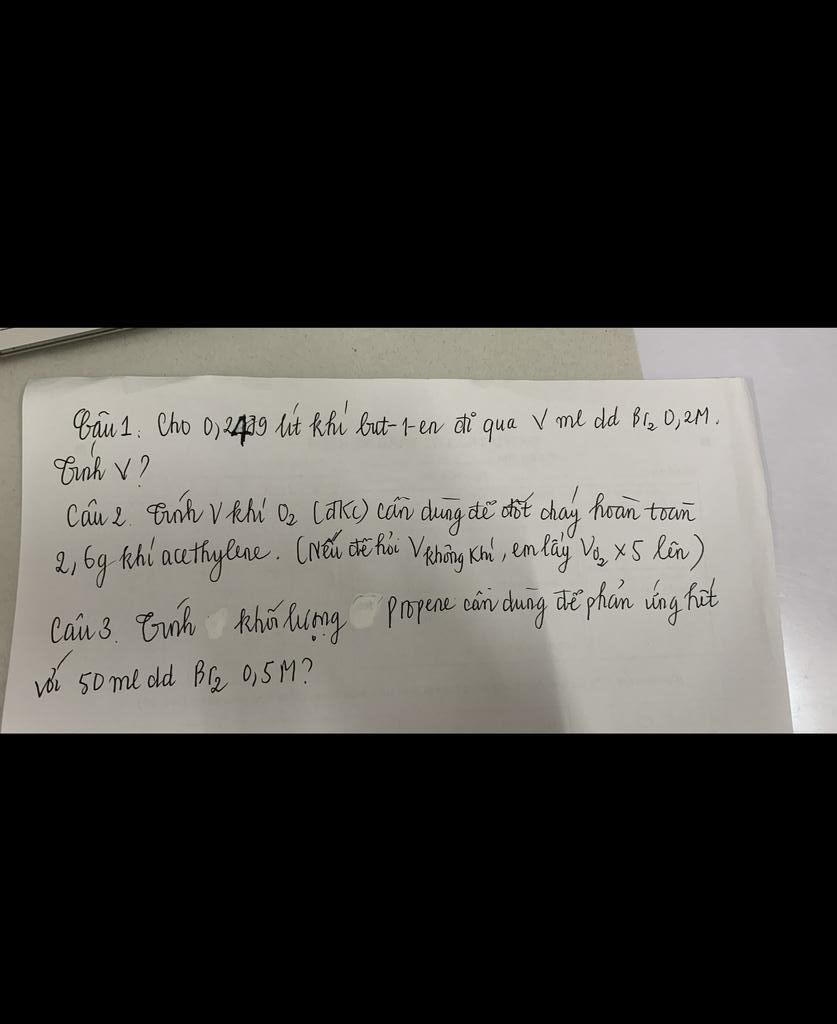 Câu 1. Cho 0,2479 lít khí but-1-en đi qua V ml dd Br2 0,2M.
Tính V?
Câu 2. Tính V khí O2 (đKc) cần dùng để đốt cháy hoàn toàn
2,6g khí acethylene. (Nếu đề hỏi Vkhông khí, em lấy VO2 x 5 lên)
Câu 3. Tính khối lượng propene cần dùng để phản ứng hết
với 50 ml dd Br2 0,5M?